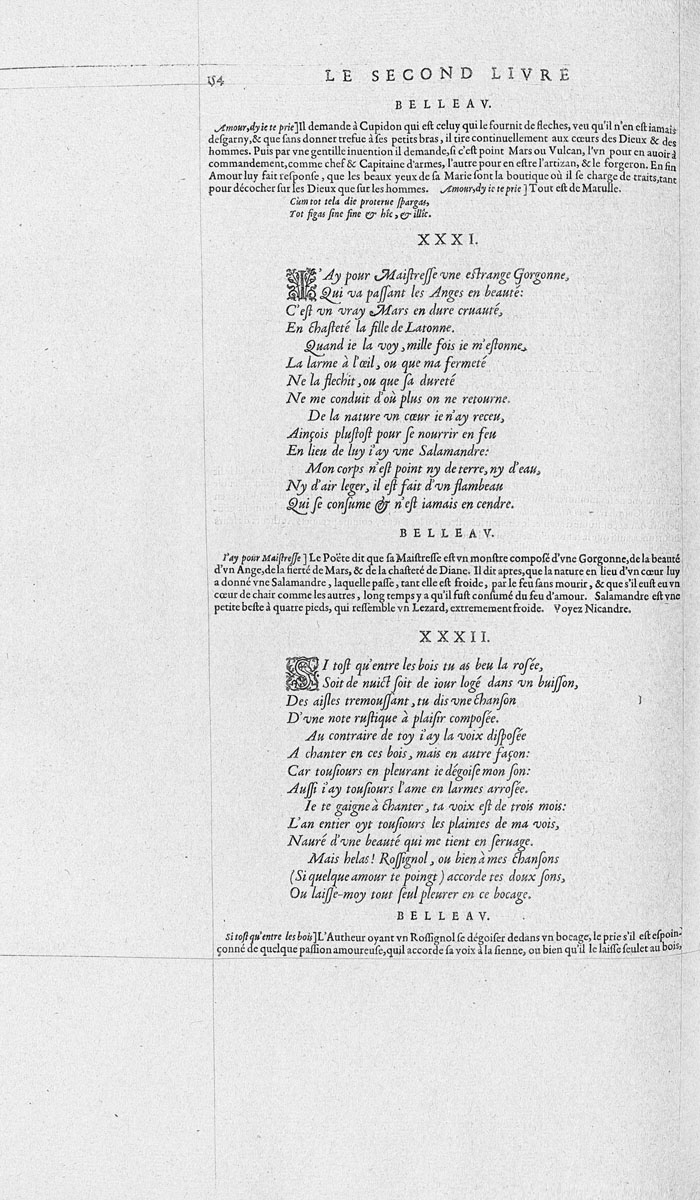 154
LE SECOND LIVRE
BELLEAV.
Amour, dy ie te prie] Il demande à Cupidon qui est celuy qui le fournit de fleches, veu qu'il n'en est iamais
desgarny, & que sans donner trefue à ses petits bras, il tire continuellement aux cœurs des Dieux & des
hommes. Puis par vne gentille inuention il demande, si c'est point Mars ou Vulcan, l'vn pour en auoir à
commandement, comme chef & Capitaine d'armes, l'autre pour en estre l'artizan, & le forgeron. En fin
Amour luy fait response, que les beaux yeux de sa Marie sont la boutique où il se charge de traits, tant
pour décocher sur les Dieux que sur les hommes. Amour, dy ie te prie] Tout est de Marulle.
Cùm tot tela die proterue spargas,
Tot figas sine fine & hîc, & illîc.
XXXI.
I'Ay pour Maistresse vne estrange Gorgonne,
Qui va passant les Anges en beauté:
C'est vn vray Mars en dure cruauté,
En chasteté la fille de Latonne.
Quand ie la voy, mille fois ie m'estonne,
La larme à l'œil, ou que ma fermeté
Ne la flechit, ou que sa dureté
Ne me conduit d'où plus on ne retourne.
De la nature vn cœur ie n'ay receu,
Ainçois plustost pour se nourrir en feu
En lieu de luy i'ay vne Salamandre:
Mon corps n'est point ny de terre, ny d'eau,
Ny d'air leger, il est fait d'vn flambeau
Qui se consume & n'est iamais en cendre.
BELLEAV.
I'ay pour Maistresse] Le Poëte dit que sa Maistresse est vn monstre composé d'vne Gorgonne, de la beauté
d'vn Ange, de la fierté de Mars, & de la chasteté de Diane. Il dit apres, que la nature en lieu d'vn cœur luy
a donné vne Salamandre, laquelle passe, tant elle est froide, par le feu sans mourir, & que s'il eust eu vn
cœur de chair comme les autres, long temps y a qu'il fust consumé du feu d'amour. Salamandre est vne
petite beste à quatre pieds, qui ressemble vn Lezard, extremement froide. Voyez Nicandre.
XXXII.
SI tost qu'entre les bois tu as beu la rosée,
Soit de nuict soit de iour logé dans vn buisson,
Des aisles tremoussant, tu dis vne chanson
D'vne note rustique à plaisir composée.
Au contraire de toy i'ay la voix disposée
A chanter en ces bois, mais en autre façon:
Car tousiours en pleurant ie dégoise mon son:
Aussi i'ay tousiours l'ame en larmes arrosée.
Ie te gaigne à chanter, ta voix est de trois mois:
L'an entier oyt tousiours les plaintes de ma vois,
Nauré d'vne beauté qui me tient en seruage.
Mais helas! Rossignol, ou bien à mes chansons
(Si quelque amour te poingt) accorde tes doux sons,
Ou laisse-moy tout seul pleurer en ce bocage.
BELLEAV.
Si tost qu'entre les bois] L'Autheur oyant vn Rossignol se dégoiser dedans vn bocage, le prie s'il est espoin-
çonné de quelque passion amoureuse, quil accorde sa voix à la sienne, ou bien qu'il le laisse seulet au bois,